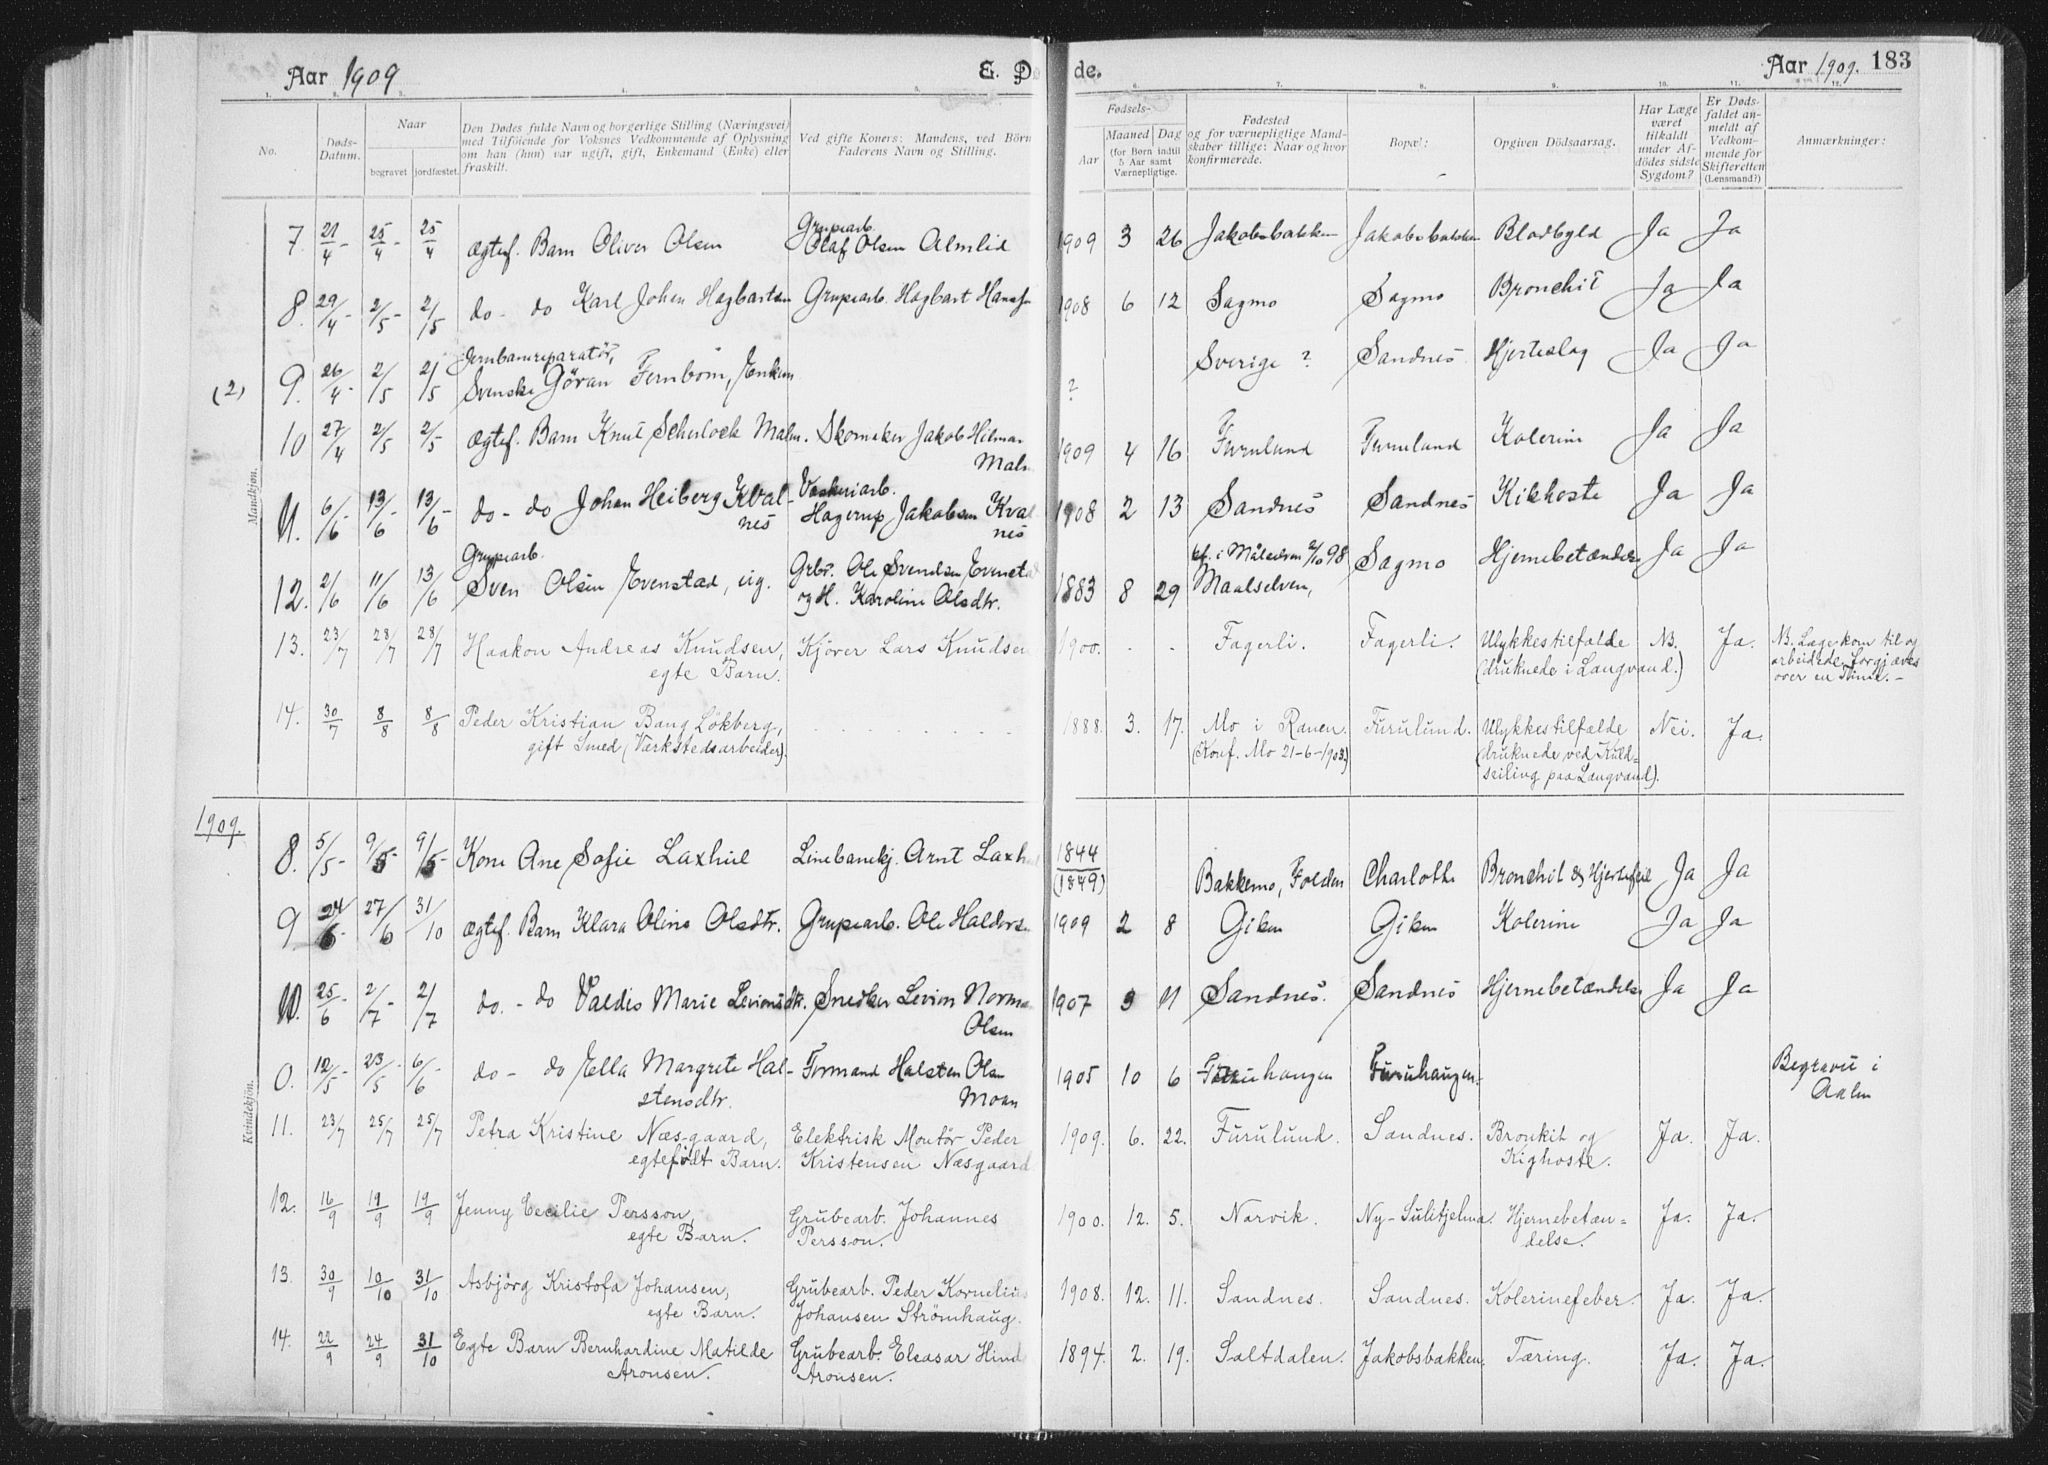 Aar 1909
E. Dø
de.
Aar 1909. 183
1. 2. 3. 4. 5. 6. 7. 8. 9. 10. 11. 12.
No.
Døds-
Datum.
Naar
begravet
jordfæstet.
Den Dødes fulde Navn og borgerlige Stilling (Næringsvei)
med Tilføiende for Voksnes Vedkommende af Oplysning
om han (hun) var ugift, gift, Enkemand (Enke) eller
fraskilt.
Ved gifte Koners: Mandens, ved Børn
Faderens Navn og Stilling.
Fødsels-
Aar
Maaned
(for Børn indtil
5 Aar samt
Værnepligtige.
Dag
Fødested
og for værnepligtige Mand-
skaber tillige: Naar og hvor
konfirmerede.
Bopæl:
Opgiven Dödsaarsag.
Har Læge
været
tilkaldt
under Af-
dödes sidste
Sygdom?
Er Døds-
faldet an-
meldt af
Vedkom-
mende for
Skifteretten
(Lensmand?)
Anmærkninger:
Mandkjøn.
7. 21/4 - 25/4 - 25/4 ægtef. Barn Oliver Olsen Grupearb. Olaf Olsen Almlid 1909 3 26 Jakobsbakken Jakobsbakken Blodbyld Ja Ja
8. 29/4 - 2/5 - 2/5 do - do Karl Johan Hagbartsen Grupearb. Hagbart Hans 1908 6 12 Sagmo Sagmo Bronchit Ja Ja
(2) 9. 26/4 - 2/5 2/5 Jernbanereparatör, Svenske Göran Fernbom, Enkem ? Sverige ? Sandnes Hjerteslag Ja Ja
10 27/4 2/5 2/5 ægtef. Barn Knut Scherlock Malm. Skomaker Jakob Hilmar
Malm 1909 4 16 Furulund Furulund Kolerine Ja Ja
11. 6/6 - 13/6 - 13/6 - do - do Johan Heiberg Kval-
nes Vaskeriarb. Hagerup Jakobsen Kval
nes 1908 2 13 Sandnes Sandnes Kikhoste Ja Ja
12. 2/6 11/6 13/6 Grupearb. Sven Olsen Evenstad, ug. Grbr. Ole Svendsen Evenstad
og H. Karoline Olsdtr. 1883 8 29 kf. i Målselven 2/10 98
Maalselven, Sagmo Hjernebetændelse Ja Ja
13. 23/7 28/7 28/7 Haakon Andreas Knudsen,
egte Barn. Kjörer Lars Knudsen 1900. - - Fagerli. Fagerli. Ulykkestilfælde
(druknede i Langvand.) NB. Ja. NB. Læge kom til og
arbeidede forgjæves
over en Time. -
14. 30/7 8/8 8/8 Peder Kristian Bang Lökberg,
gift Smed (Værkstedsarbeider). 1888. 3. 17. Mo i Ranen.
(Konf. Mo 21-6-1903.) Furulund. Ulykkestilfælde
(druknede ved Kuld-
seiling paa Langvand). Nei. Ja.
1909.
Kvindekjøn.
8. 5/5 - 9/5 - 9/5 - Kone Ane Sofie Laxhül Linebanekj. Arnt Laxh 1844
(1849) Bakkemo, Folden Charlotte Bronchit & Hjertefeil Ja Ja
9 24/6 - 27/6 31/10 ægtef. Barn Klara Oline Olsdtr. Grupearb. Ole Halders 1909 2 8 Giken Giken Kolerine Ja Ja
10. 25/6 - 2/7 - 2/7 do. - do Valdis Marie Levionsdtr. Snedker Levion Norm
Olsen 1907 3 11 Sandnes. Sandnes Hjernebetændelse Ja Ja
0. 12/5 - 23/5 - 6/6 - do - do Ella Margrete Hal-
stensdtr. Formand Halsten Olsen
Moan 1905 10 6 Furuhaugen Furuhaugen Begravet i

11. 23/7 25/7 25/7 Petra Kristine Næsgaard,
egtefödt Barn. Elektrisk Montör Peder
Kristensen Næsgaard 1909. 6. 22. Furulund. Sandnes. Bronkit og
Kighoste. Ja. Ja.
12. 16/9 19/9 19/9 Jenny Cecilie Persson,
egte Barn. Grubearb. Johannes
Persson. 1900. 12. 5. Narvik. Ny-Sulitjelma. Hjernebetæn-
delse. Ja. Ja.
13. 30/9 10/10 31/10 Asbjörg Kristofa Johansen,
egte Barn. Grubearb. Peder Kornelius
Johansen Strömhaug. 1908. 12. 11. Sandnes. Sandnes. Kolerinefeber. Ja. Ja.
14. 22/9 24/9 31/10 Egte Barn Bernhardine Matilde
Aronsen. Grubearb. Eleasar Hind
Aronsen. 1894. 2. 19. Saltdalen. Jakobsbakken. Tæring. Ja. Ja.